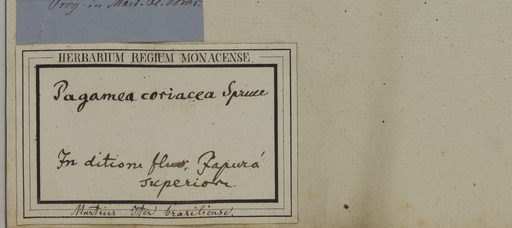 Prog. in Mart. Fl. bras.
HERBARIUM REGIUM MONACENSE.
Pagamea coriacea Spruce
In ditione fluv. Japurá
superiore.
Martius Iter brasiliense.